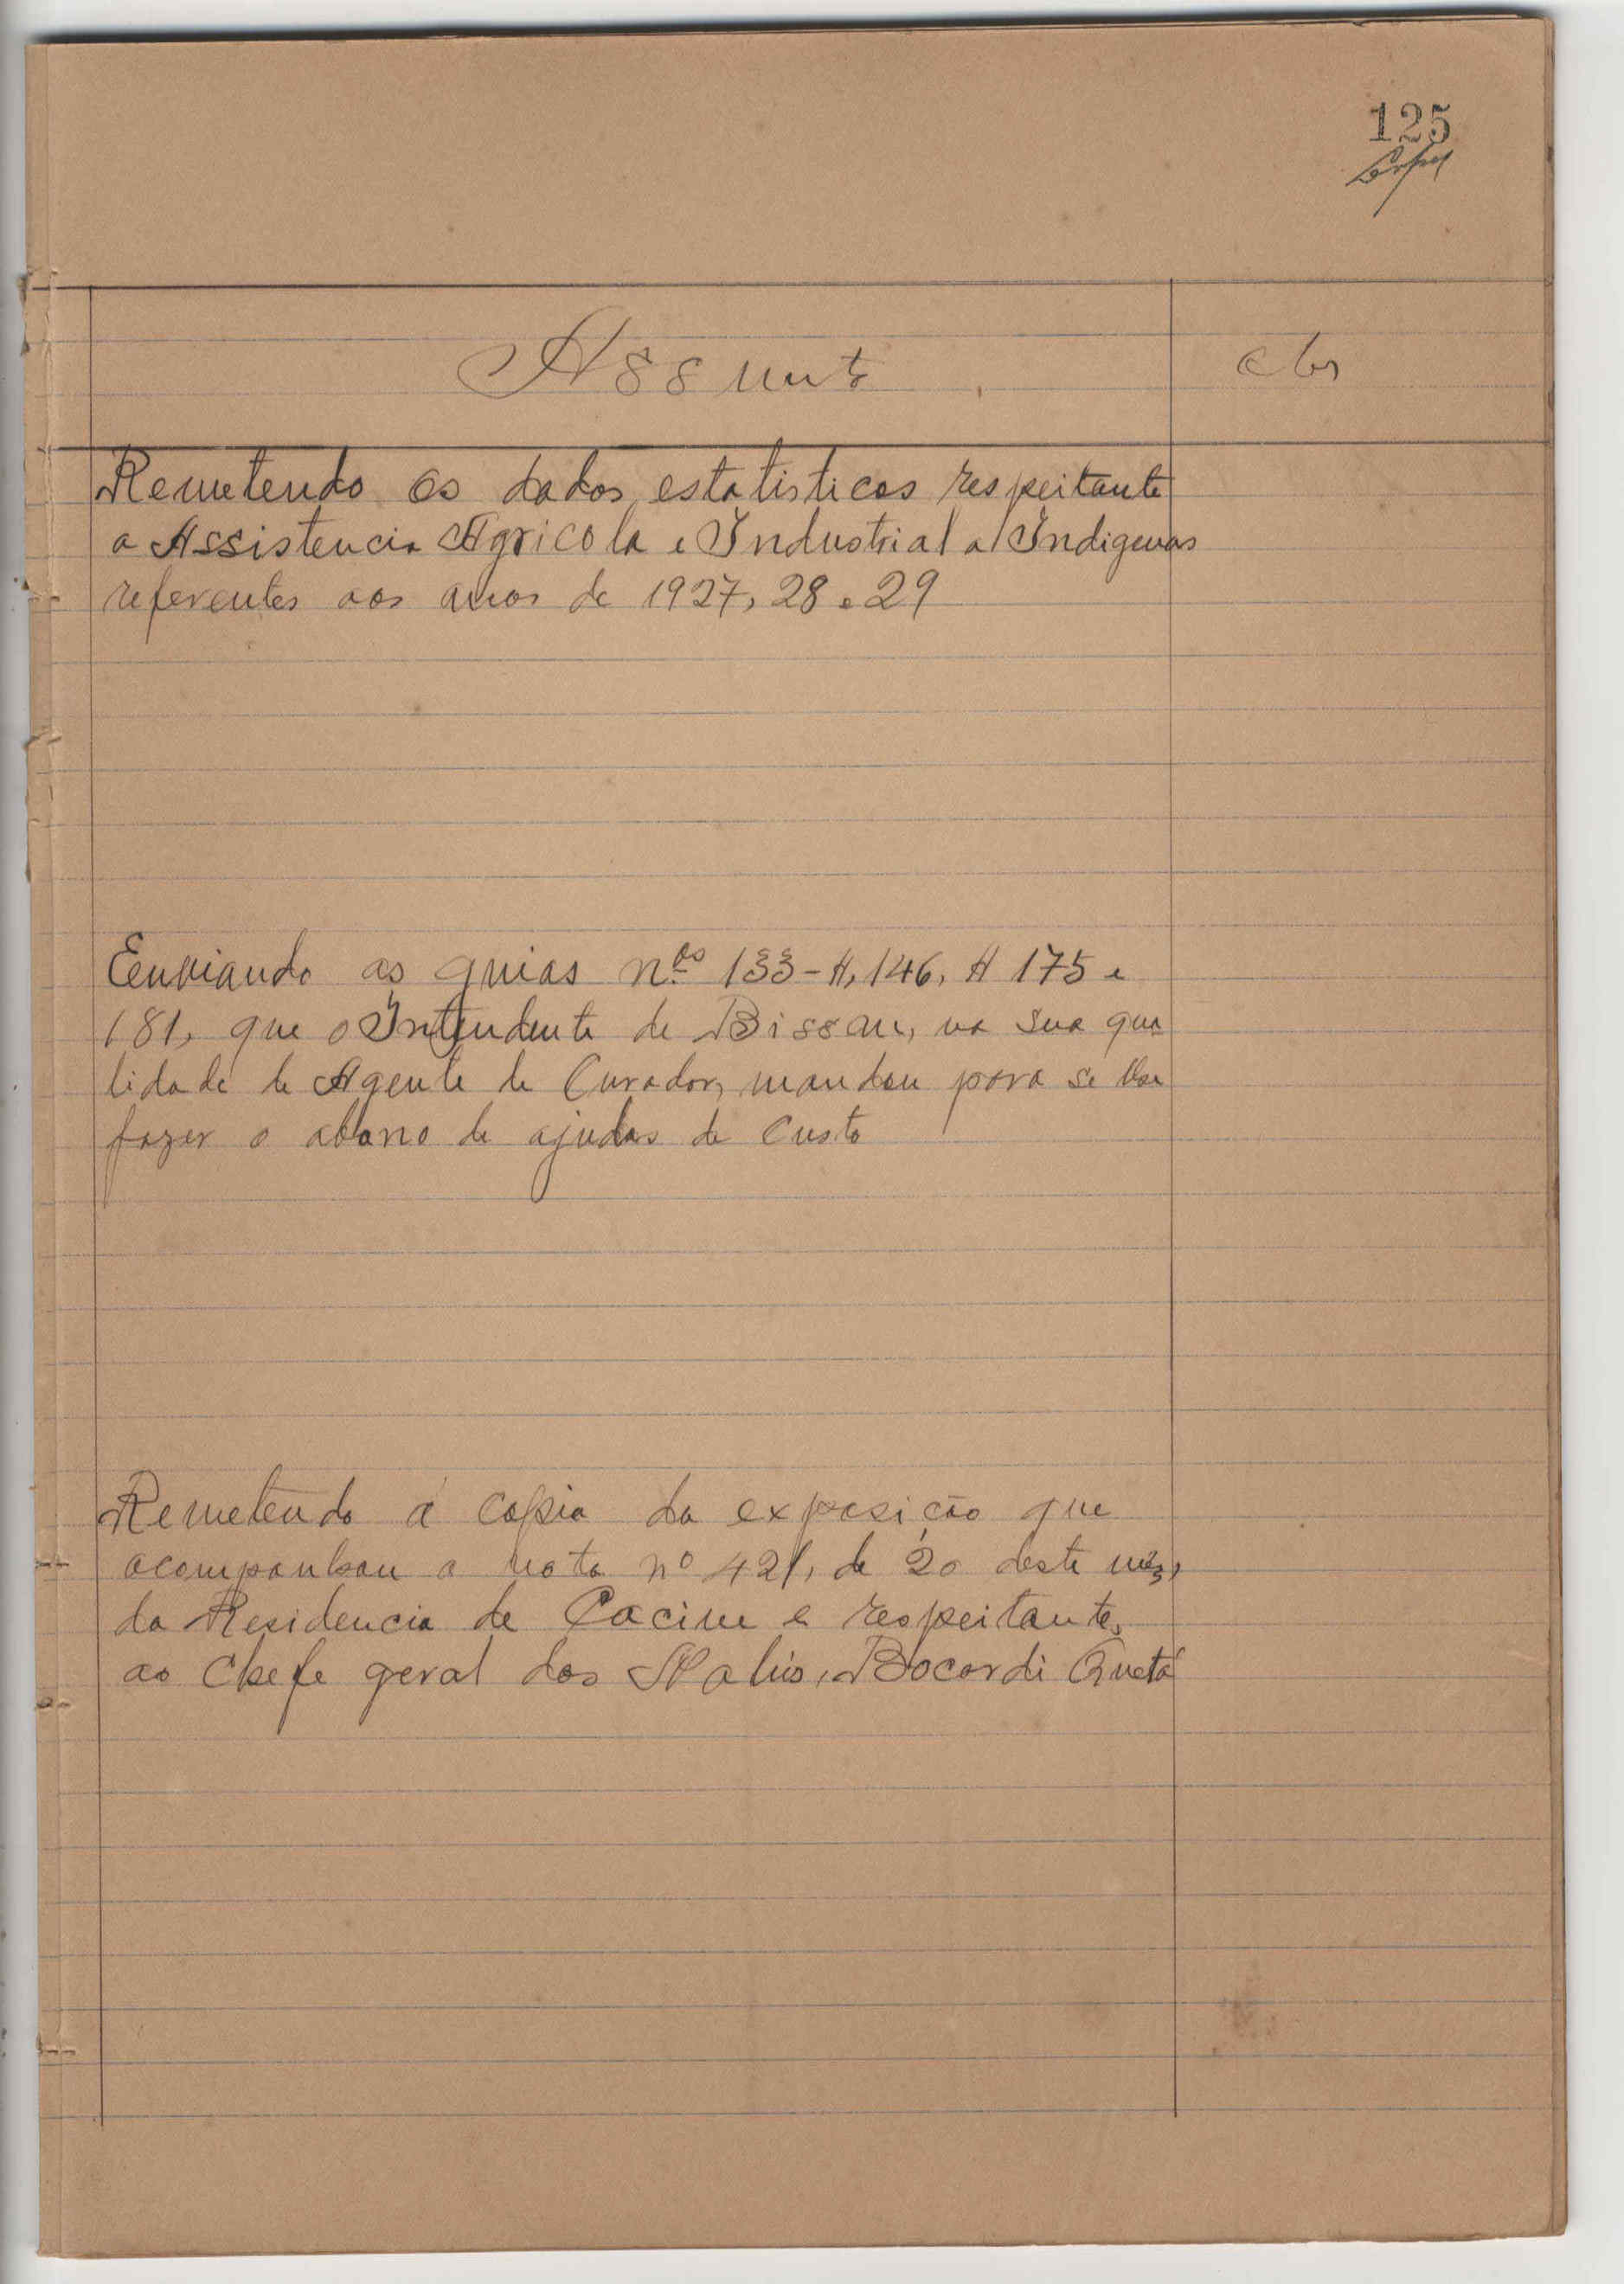 125
Assunto
Obs
Remetendo os dados estatisticos respeitante
a Assistencia Agricola e Industrial a Indigenas
referentes aos anos de 1927, 28 e 29
Eenviando as guias n.os 133-A, 146, A 175 e
181, que o Intendente de Bissau, na sua qua
lidade de Agente de Curador, mandou para se lhe
fazer o abono de ajudas de Custo
Remetendo á copia da exposição que
acompanhou a nota nº 421, de 20 deste mês,
da Residencia de Cacine e respeitante,
ao Chefe geral dos Nalús, Bocordi Quetá